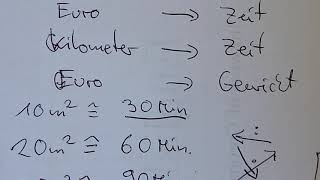 Euro → Zeit
Kilometer → Zeit
Euro → Gewicht
10m² ≙ 30 Min
20m² ≙ 60 Min.
90 Min